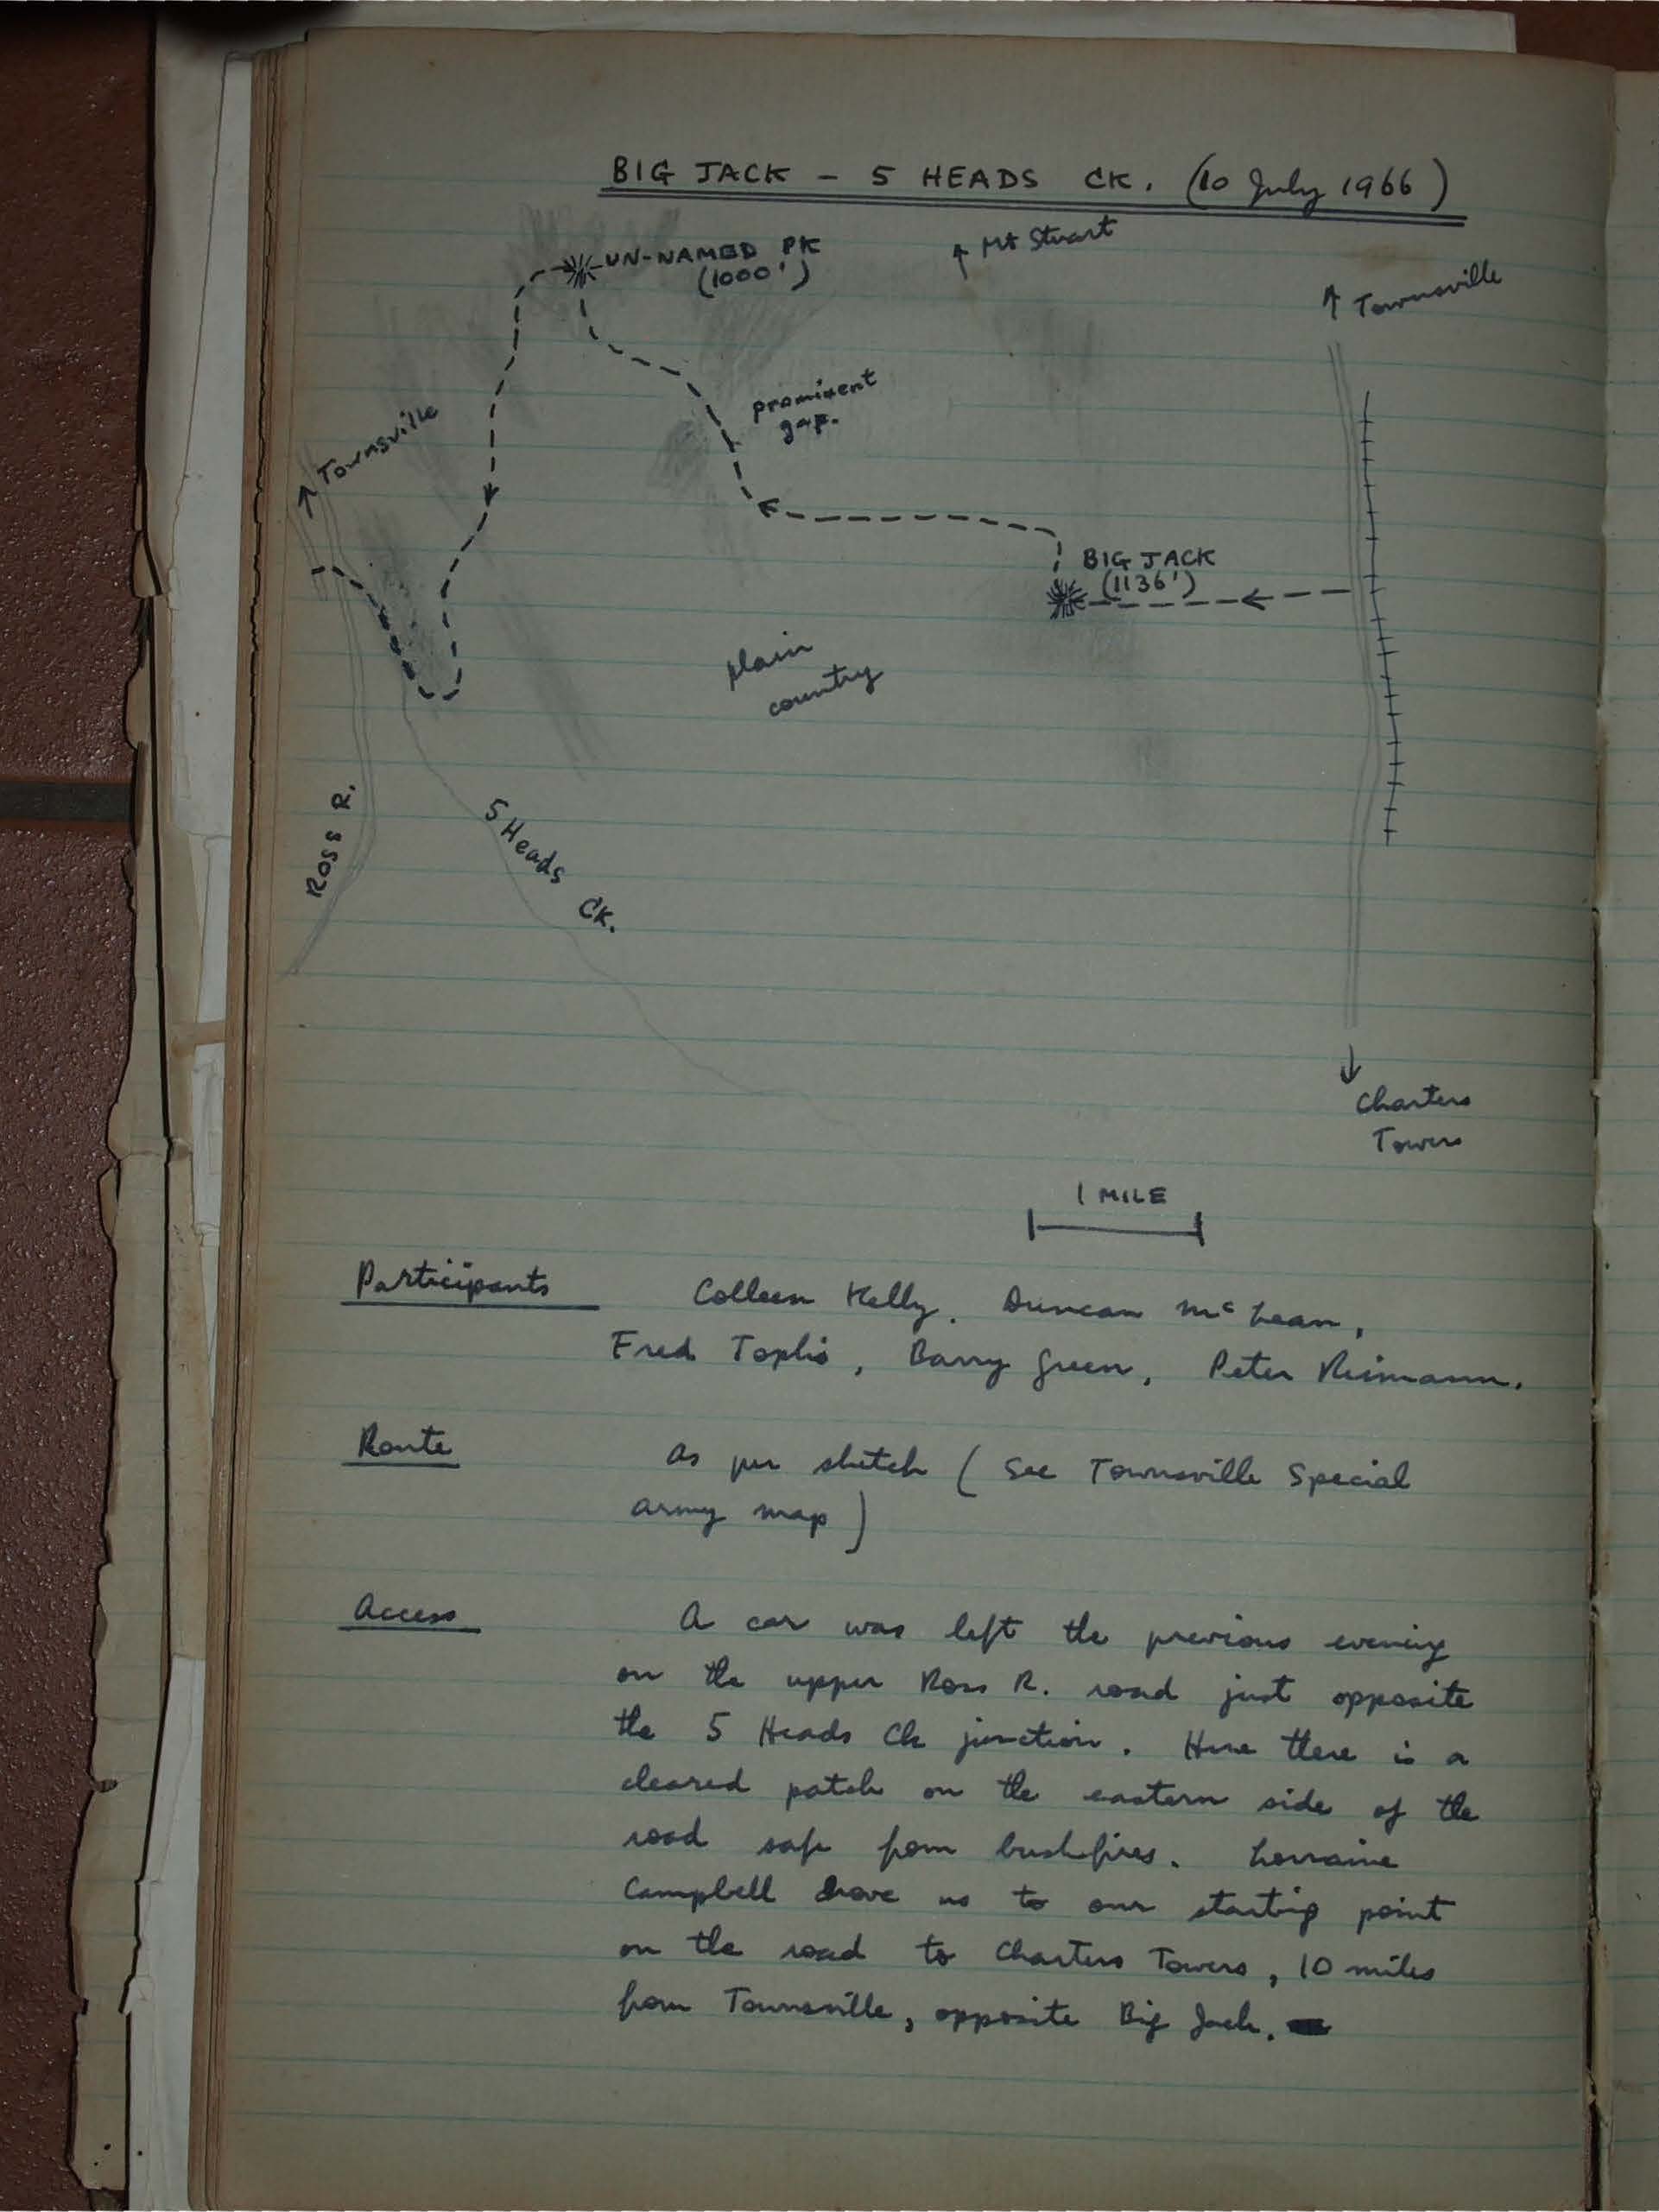 BIG JACK - 5 HEADS CK. (10 July 1966)
↑ Mt Stuart
UN-NAMED PK
(1000')
↑ Townsville
prominent
gap.
↑ Townsville
BIG JACK
(1136')
plain
country
ROSS R.
5 Heads CK.
↓
Charters
Towers
1 MILE
Participants Colleen Kelly. Duncan McLean,
Fred Toplis, Barry Green, Peter Reimann.
Route As per sketch (See Townsville Special
army map)
Access A car was left the previous evening
on the upper Ross R. road just opposite
the 5 Heads Ck junction. Here there is a
cleared patch on the eastern side of the
road safe from bushfires. Lorraine
Campbell drove us to our starting point
on the road to Charters Towers, 10 miles
from Townsville, opposite Big Jack.